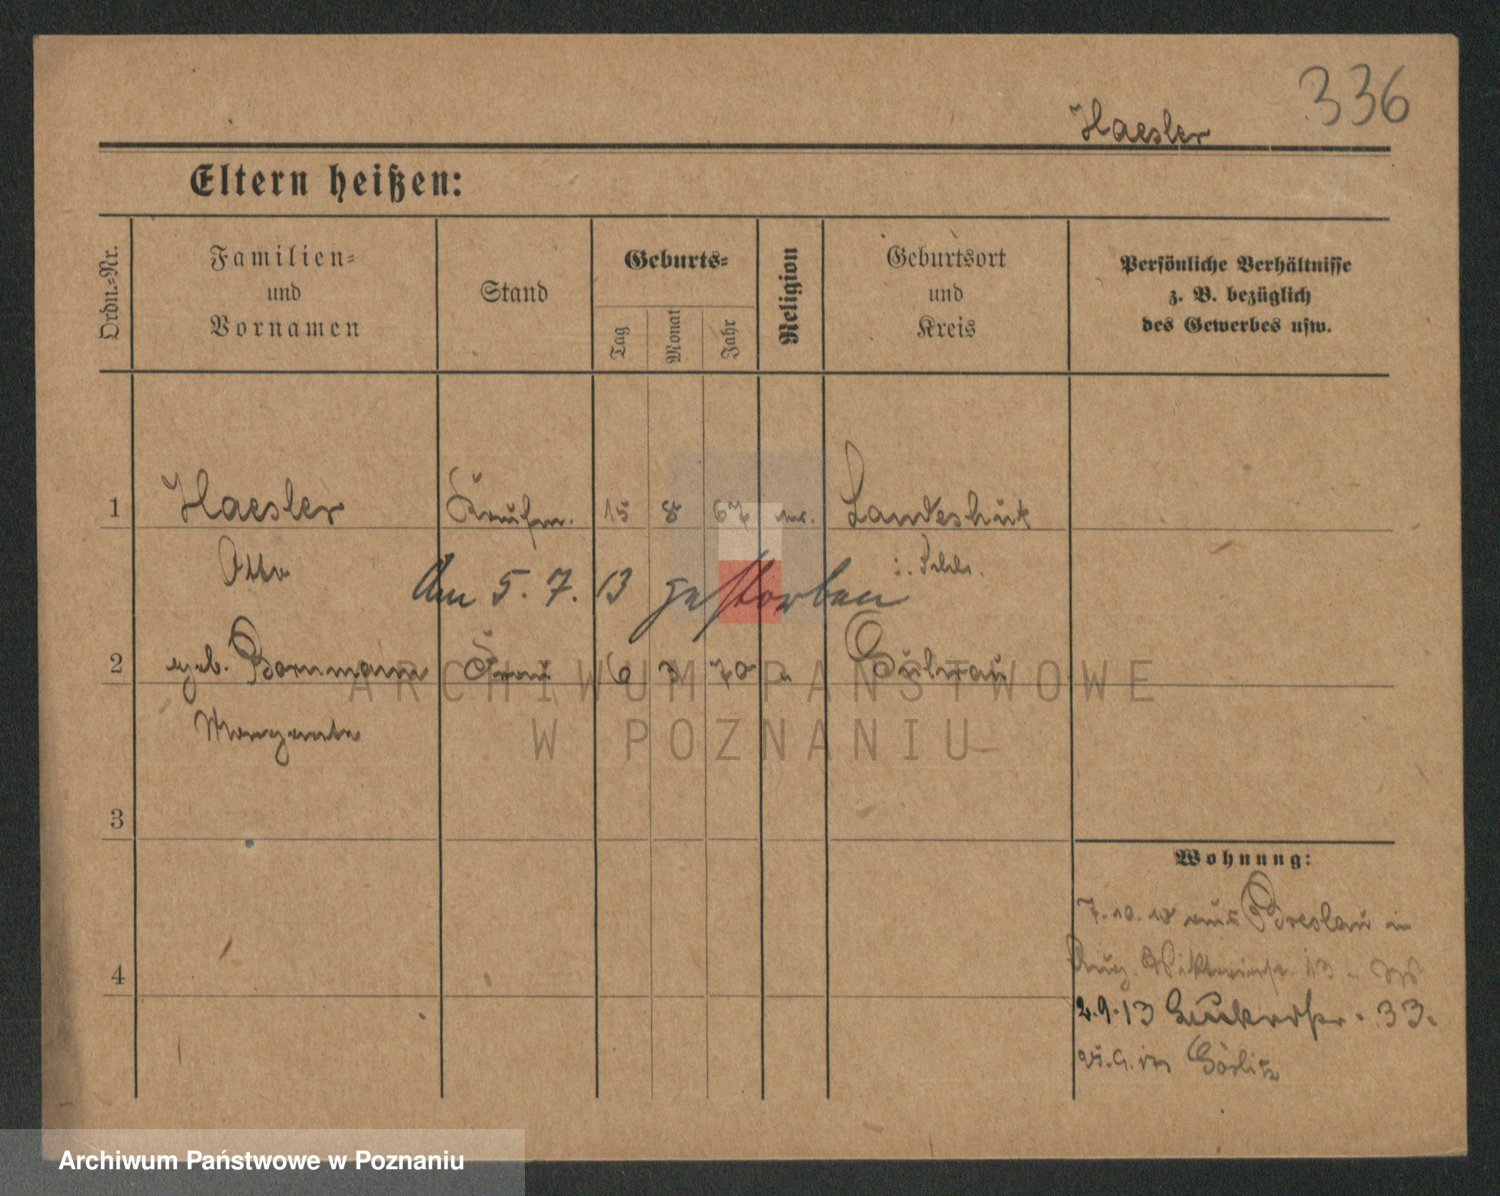 336
Haesler
Eltern heißen:
Ordn.-Nr.
Familien- und Vornamen
Stand
Geburts-
Tag
Monat
Jahr
Religion
Geburtsort und Kreis
Persönliche Verhältnisse z. B. bezüglich des Gewerbes usw.
1 Haesler Kaufm. 15 8 67 Landeshut
Otto i. Schl.
Am 5. 7. 13 gestorben
2 geb. Bornmann Frau 6 3 70
Margarete
3
4
Wohnung:
7.10. aus Breslau in
Aug. Viktoriastr. 13
2.9.13 33.
in Görlitz
ARCHIWUM PAŃSTWOWE
W POZNANIU
Archiwum Państwowe w Poznaniu